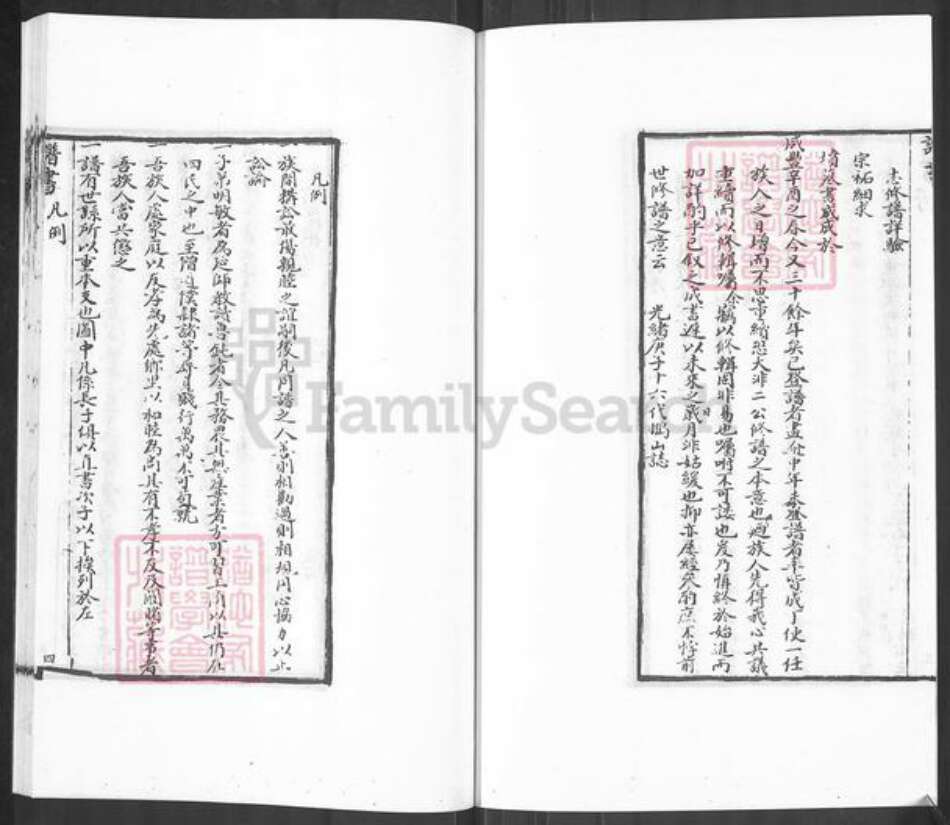 去修譜詳驗
宗祏細求
墳墓書或成於
咸豐辛酉之春今又三十餘年矣已登譜者盡屬中年未登譜者率皆成丁使一任
族人之日增而不思重續恐大非二公修譜之本意也迺族人先得我心共議
重續而以修輯囑余竊以修輯固非易也囑咐不可諉也爰乃慎終於始進而
加詳酌乎已敘之成書遲以未來之歲月非姑緩也抑亦屢經參酌庶不悖前
世修譜之意云 光緒庚子十六代 山誌
凡例
一族間搆訟最傷親睦之誼嗣後凡同譜之人善則相勸過則相規同心協力以止
訟端
一子弟明敏者為延師教讀魯鈍者令其務農其無產業者方可習工商以其仍在
四民之中也至 隸諸等身賤行萬萬不可
一吾族人處家庭以友孝為先處鄉里以和睦為尚其有不孝不友及鬩牆等事者
吾族人當共懲之
一譜有世錄所以重本支也圖中凡係長子俱以直書次子以下挨列於左
譜書 凡例
四
FamilySearch